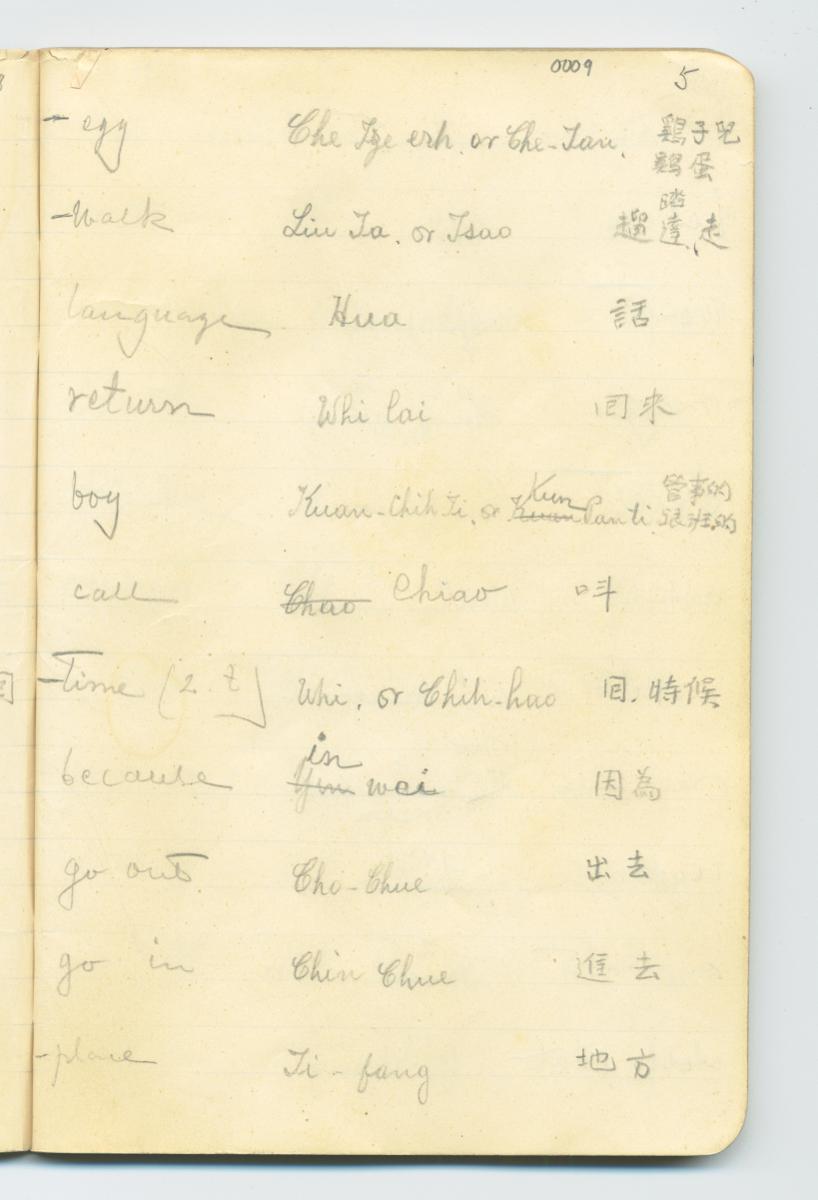 0009 5
- egg Che Tze erh. or Che-Tan. 鷄子兒
鷄蛋
- Walk Liu Ta. or Tsao 蹓踏達、走
language Hua 話
return Whi lai 回来
boy Kuan-Chih Ti, or Kuan Kun Pan ti 管事的
跟班的
call Chao Chiao 呌
- Time (2. t) Whi, or Chih-hao 回.時候
because Yin in wei 因為
go out. Cho-Chue 出去
go in Chin Chue 進去
- place Ti-fang 地方